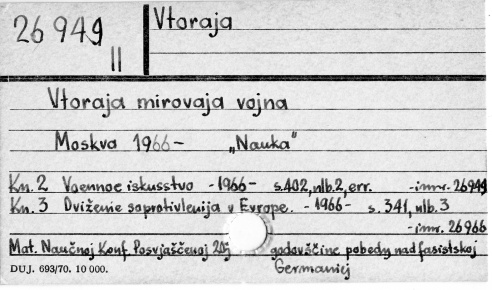 26 949 Vtoraja
II
Vtoraja mirovaja vojna
Moskva 1966- „Nauka"
Kn. 2 Voennoe iskusstvo -1966- s.402, nlb.2, err. -inw. 26949
Kn. 3 Dviženie soprotivlenija v Evrope. -1966- s. 341, nlb.3
-inw. 26966
Mat. Naučnoj Konf. Posvjaščenoj 20j godovščine pobedy nad fasistskoj
DUJ. 693/70. 10 000. Germaniej